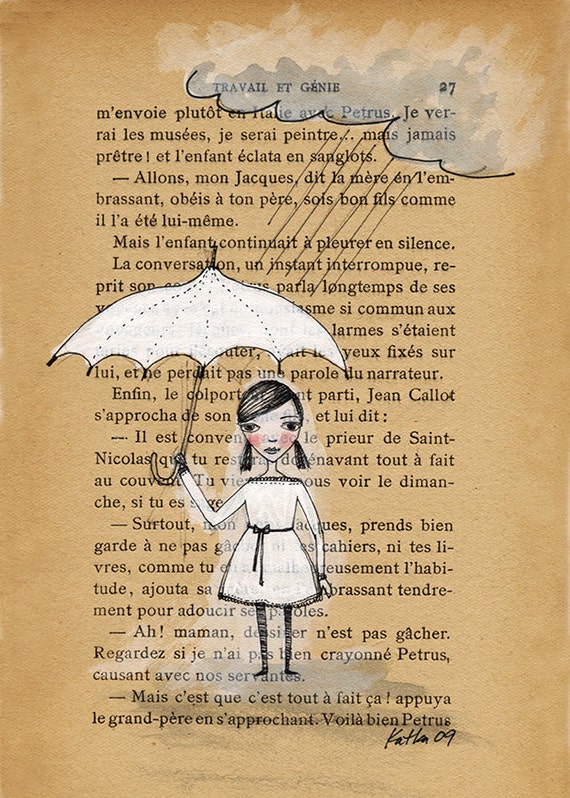 TRAVAIL ET GÉNIE 27
m'envoie plutôt en Italie avec Petrus. Je ver-
rai les musées, je serai peintre... mais jamais
prêtre! et l'enfant éclata en sanglots.
— Allons, mon Jacques, dit la mère en l'em-
brassant, obéis à ton père, sois bon fils comme
il l'a été lui-même.
Mais l'enfant continuait à pleurer en silence.
La conversation, un instant interrompue, re-
prit son parla longtemps de ses
si commun aux
larmes s'étaient
yeux fixés sur
lui, et ne perdait pas une parole du narrateur.
Enfin, le colport parti, Jean Callot
s'approcha de son et lui dit :
— Il est conven avec le prieur de Saint-
Nicolas que tu rest dorénavant tout à fait
au couvent. Tu vie ous voir le diman-
che, si tu es sage
— Surtout, mon Jacques, prends bien
garde à ne pas gâc ni es cahiers, ni tes li-
vres, comme tu en malheureusement l'habi-
tude, ajouta sa en l' brassant tendre-
ment pour adoucir ses paroles.
— Ah! maman, dessiner n'est pas gâcher.
Regardez si je n'ai pas bien crayonné Petrus,
causant avec nos servantes.
— Mais c'est que c'est tout à fait ça! appuya
le grand-père en s'approchant. Voilà bien Petrus
Katka 09